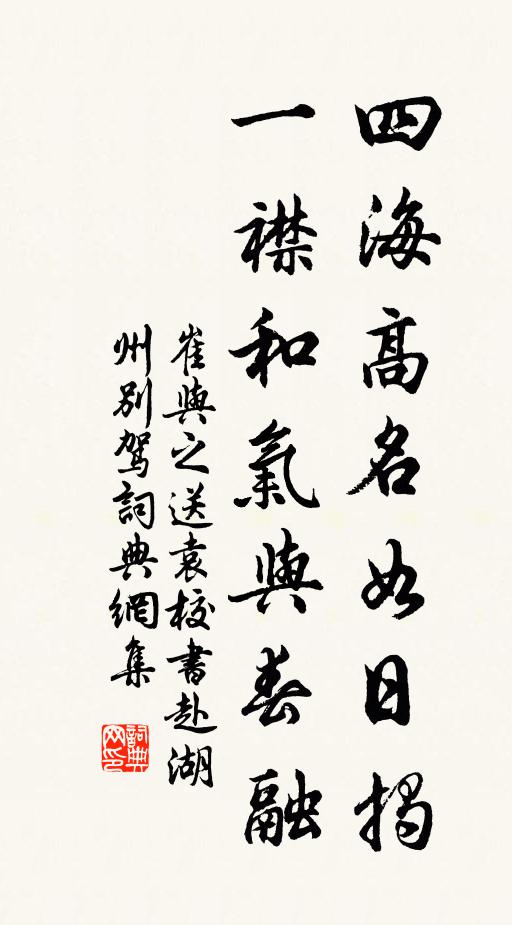 四海高名如日揭
一襟和氣與春融
崔與之送袁校書赴湖
州別駕詞典網集
詞典网印